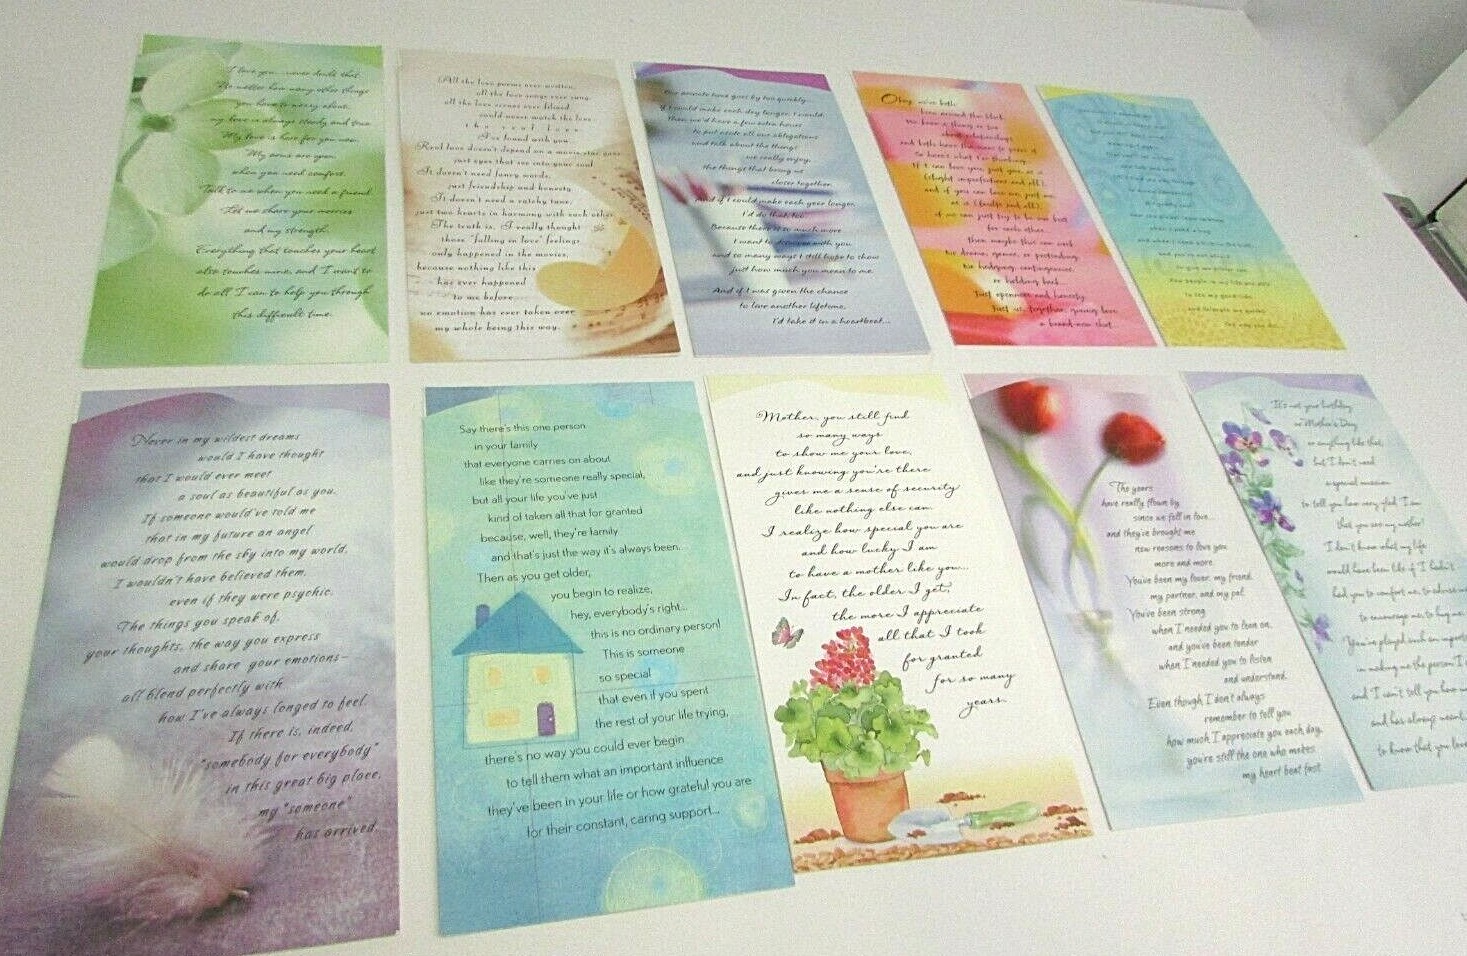 I love you...never doubt that.
No matter how many other things
you have to worry about,
my love is always steady and true.
My love is here for you now.
My arms are open
when you need comfort.
Talk to me when you need a friend.
Let me share your worries
and my strength.
Everything that touches your heart
also touches mine, and I want to
do all I can to help you through
this difficult time.
All the love poems ever written,
all the love songs ever sung,
all the love scenes ever filmed
could never match the love
the real love
I've found with you...
Real love doesn't depend on a movie-star gaze
just eyes that see into your soul
It doesn't need fancy words,
just friendship and honesty
It doesn't need a catchy tune,
just two hearts in harmony with each other.
The truth is, I really thought
those "falling in love" feelings
only happened in the movies,
because nothing like this
has ever happened
to me before
no emotion has ever taken over
my whole being this way.
Our private time goes by too quickly...
If I could make each day longer, I would,
then we'd have a few extra hours
to put aside all our obligations
and talk about the things
we really enjoy,
the things that bring us
closer together.
And if I could make each year longer,
I'd do that, too
Because there is so much more
I want to discover with you
and so many ways I still hope to show
just how much you mean to me.
And if I was given the chance
to love another lifetime,
I'd take it in a heartbeat...
Okay, we've both
been around the block.
We know a thing or two
about relationships
and both have the scars to prove it
So here's what I'm thinking
If I can love you, just you, as is
(slight imperfections and all),
and if you can love me, just me,
as is (baggage and all),
if we can just try to be our best
for each other,
then maybe this can work
No drama, games, or pretending.
No hedging, contingencies,
or holding back.
Just openness and honesty
Just us, together, giving love
a brand-new start.
Never in my wildest dreams
would I have thought
that I would ever meet
a soul as beautiful as you.
If someone would've told me
that in my future an angel
would drop from the sky into my world,
I wouldn't have believed them,
even if they were psychic.
The things you speak of,
your thoughts, the way you express
and share your emotions—
all blend perfectly with
how I've always longed to feel.
If there is, indeed,
"somebody for everybody"
in this great big place,
my "someone"
has arrived.
Say there's this one person
in your family
that everyone carries on about
like they're someone really special,
but all your life you've just
kind of taken all that for granted
because, well, they're family
and that's just the way it's always been...
Then as you get older,
you begin to realize,
hey, everybody's right...
this is no ordinary person!
This is someone
so special
that even if you spent
the rest of your life trying,
there's no way you could ever begin
to tell them what an important influence
they've been in your life or how grateful you are
for their constant, caring support...
Mother, you still find
so many ways
to show me your love,
and just knowing you're there
gives me a sense of security
like nothing else can.
I realize how special you are
and how lucky I am
to have a mother like you...
In fact, the older I get,
the more I appreciate
all that I took
for granted
for so many
years.
The years
have really flown by
since we fell in love...
and they've brought me
new reasons to love you
more and more.
You've been my lover, my friend,
my partner, and my pal.
You've been strong
when I needed you to lean on,
and you've been tender
when I needed you to listen
and understand.
Even though I don't always
remember to tell you
how much I appreciate you each day,
you're still the one who makes
my heart beat fast.
It's not your birthday
or Mother's Day
or anything like that,
but I don't need
a special occasion
to tell you how very glad I am
that you are my mother!
I don't know what my life
would have been like if I hadn't
had you to comfort me, to
to encourage me, to hug me.
You've played such an
in making me the person I
and I can't tell you how
and has always meant
to know that you love